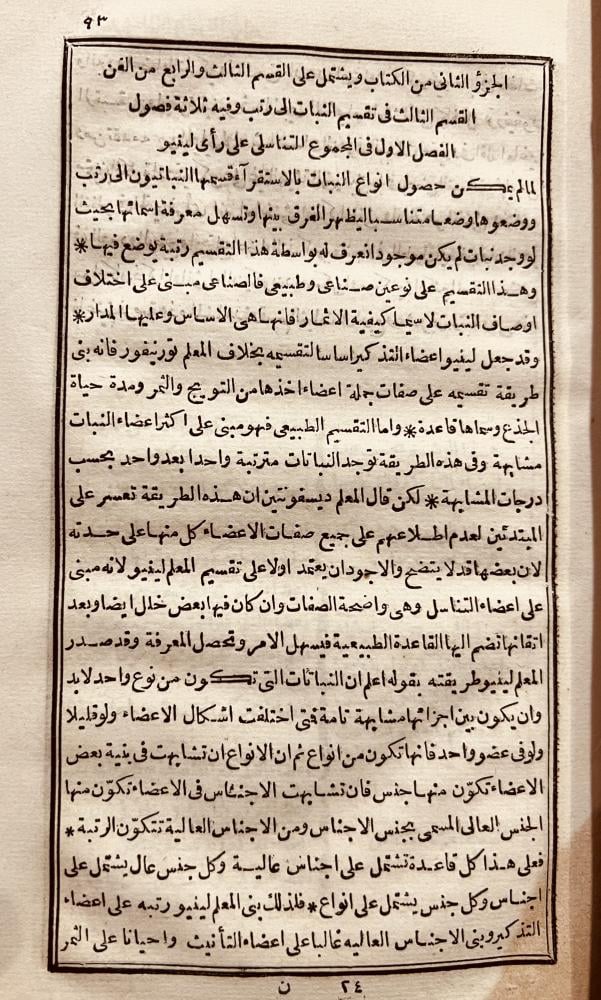 ٩٣
الجزؤ الثانى من الكتاب ويشتمل على القسم الثالث والرابع من الفن
القسم الثالث فى تقسيم النبات الى رتب وفيه ثلاثة فصول
الفصل الاول فى المجموع التناسلى على رأى لينيو
لما لم يمكن حصول انواع النبات بالاستقرآء قسمها النباتيون الى رتب
ووضعوها وضعا متناسبا ليظهر الفرق بينها وتسهل معرفة اسمائها بحيث
لو وجد نبات لم يكن موجودا نعرف له بواسطة هذا التقسيم رتبة يوضع فيها *
وهذا التقسيم على نوعين صناعى وطبيعى فالصناعى مبنى على اختلاف
اوصاف النبات لاسيما كيفية الاثمار فانها هى الاساس وعليها المدار *
وقد جعل لينيو اعضاء التذكير اساسا لتقسيمه بخلاف المعلم تورنيفور فانه بنى
طريقة تقسيمه على صفات جملة اعضاء اخذها من التويج والثمر ومدة حياة
الجذع وسماها قاعدة * واما التقسيم الطبيعى فهو مبنى على اكثر اعضاء النبات
مشابهة وفى هذه الطريقة توجد النباتات مترتبة واحدا بعد واحد بحسب
درجات المشابهة * لكن قال المعلم ديسفونتين ان هذه الطريقة تعسر على
المبتدئين لعدم اطلاعهم على جميع صفات الاعضاء كل منها على حدته
لان بعضها قد لا يتضح والاجود ان يعتمد اولا على تقسيم المعلم لينيو لانه مبنى
على اعضاء التناسل وهى واضحة الصفات وان كان فيها بعض خلل ايضا وبعد
اتقانها تضم اليها القاعدة الطبيعية فيسهل الامر وتحصل المعرفة وقد صدر
المعلم لينيو طريقته بقوله اعلم ان النباتات التى تكون من نوع واحد لابد
وان يكون بين اجزائها مشابهة تامة فتى اختلفت اشكال الاعضاء ولو قليلا
ولو فى عضو واحد فانها تكون من انواع ثم ان الانواع ان تشابهت فى بنية بعض
الاعضاء تكوّن منها جنس فان تشابهت الاجناس فى الاعضاء تكوّن منها
الجنس العالى المسمى بجنس الاجناس ومن الاجناس العالية تتكوّن الرتبة *
فعلى هذا كل قاعدة تشتمل على اجناس عالية وكل جنس عال يشتمل على
اجناس وكل جنس يشتمل على انواع * فلذلك بنى المعلم لينيو رتبه على اعضاء
التذكير وبنى الاجناس العاليه غالبا على اعضاء التأنيث واحيانا على الثمر
٢٤ ن